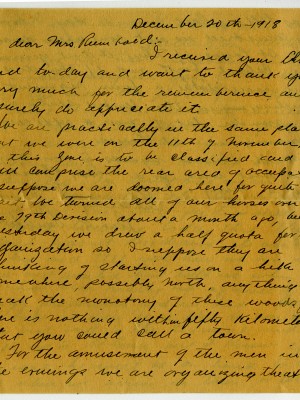 December 20th-1918
dear Mrs
I received your Ch
nd to day and want to thank y
ery much for the remembrence an
urely do appreciate it.
We are practically in the same pla
at we were on the 11th of November,
this zone is to be classified and
ill comprise the rear area of occupa
suppose we are doomed here for quite
We turned all of our horses over
e 79th Division about a month ago, bu
esterday we drew a half quota for
ganization so I suppose they are
inking of starting us on a hike
mewhere, possibly north, anything
eak the monotony of these woods
ere is nothing within fifty kilomete
hat you could call a town.
For the amusement of the men in
e evenings we are organizing theat